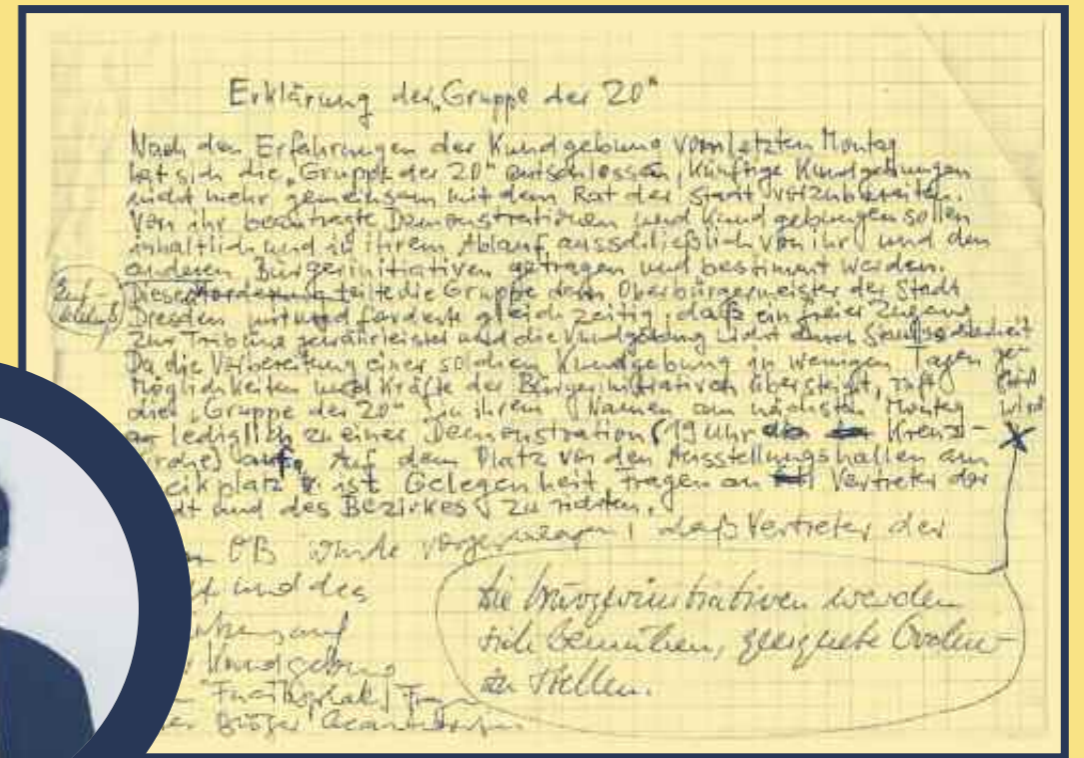 Erklärung der „Gruppe der 20"
Nach den Erfahrungen der Kundgebung vom letzten Montag
hat sich die „Gruppe der 20" entschlossen, künftige Kundgebungen
nicht mehr gemeinsam mit dem Rat der Stadt vorzubereiten.
Von ihr beantragte Demonstrationen und Kundgebungen sollen
inhaltlich und in ihrem Ablauf ausschließlich von ihr und den
anderen Bürgerinitiativen getragen und bestimmt werden.
Diesen teilte die Gruppe dem Oberbürgermeister der Stadt
Dresden mit und forderte gleichzeitig, daß ein freier Zugang
zur Tribüne gewährleistet und die Kundgebung nicht durch
Da die Vorbereitung einer solchen Kundgebung in wenigen Tagen
Möglichkeiten und Kräfte der Bürgerinitiativen übersteigt, ruft
die „Gruppe der 20" in ihrem Namen am nächsten Montag wird
lediglich zu einer Demonstration (19 Uhr Kreuz-
auf. Auf dem Platz vor den Ausstellungshallen am
ist Gelegenheit, Fragen an Vertreter der
und des Bezirkes zu richten.
OB wurde vorgeschlagen, daß Vertreter der
und des
auf
Kundgebung
Die Bürgerinitiativen werden
sich bemühen, geeignete Ordner
zu stellen.